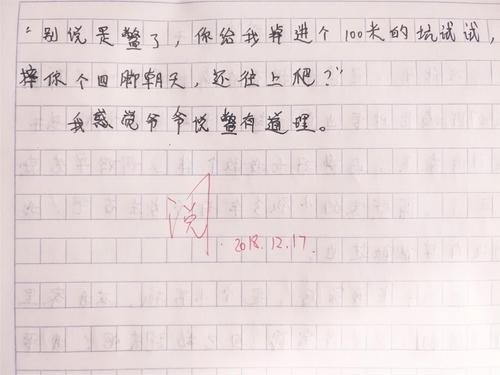 “别说是鳖了，你给我掉进个100米的坑试试，
摔你个四脚朝天，还往上爬？”
我感觉爷爷说鳖有道理。
阅
2018.12.17.